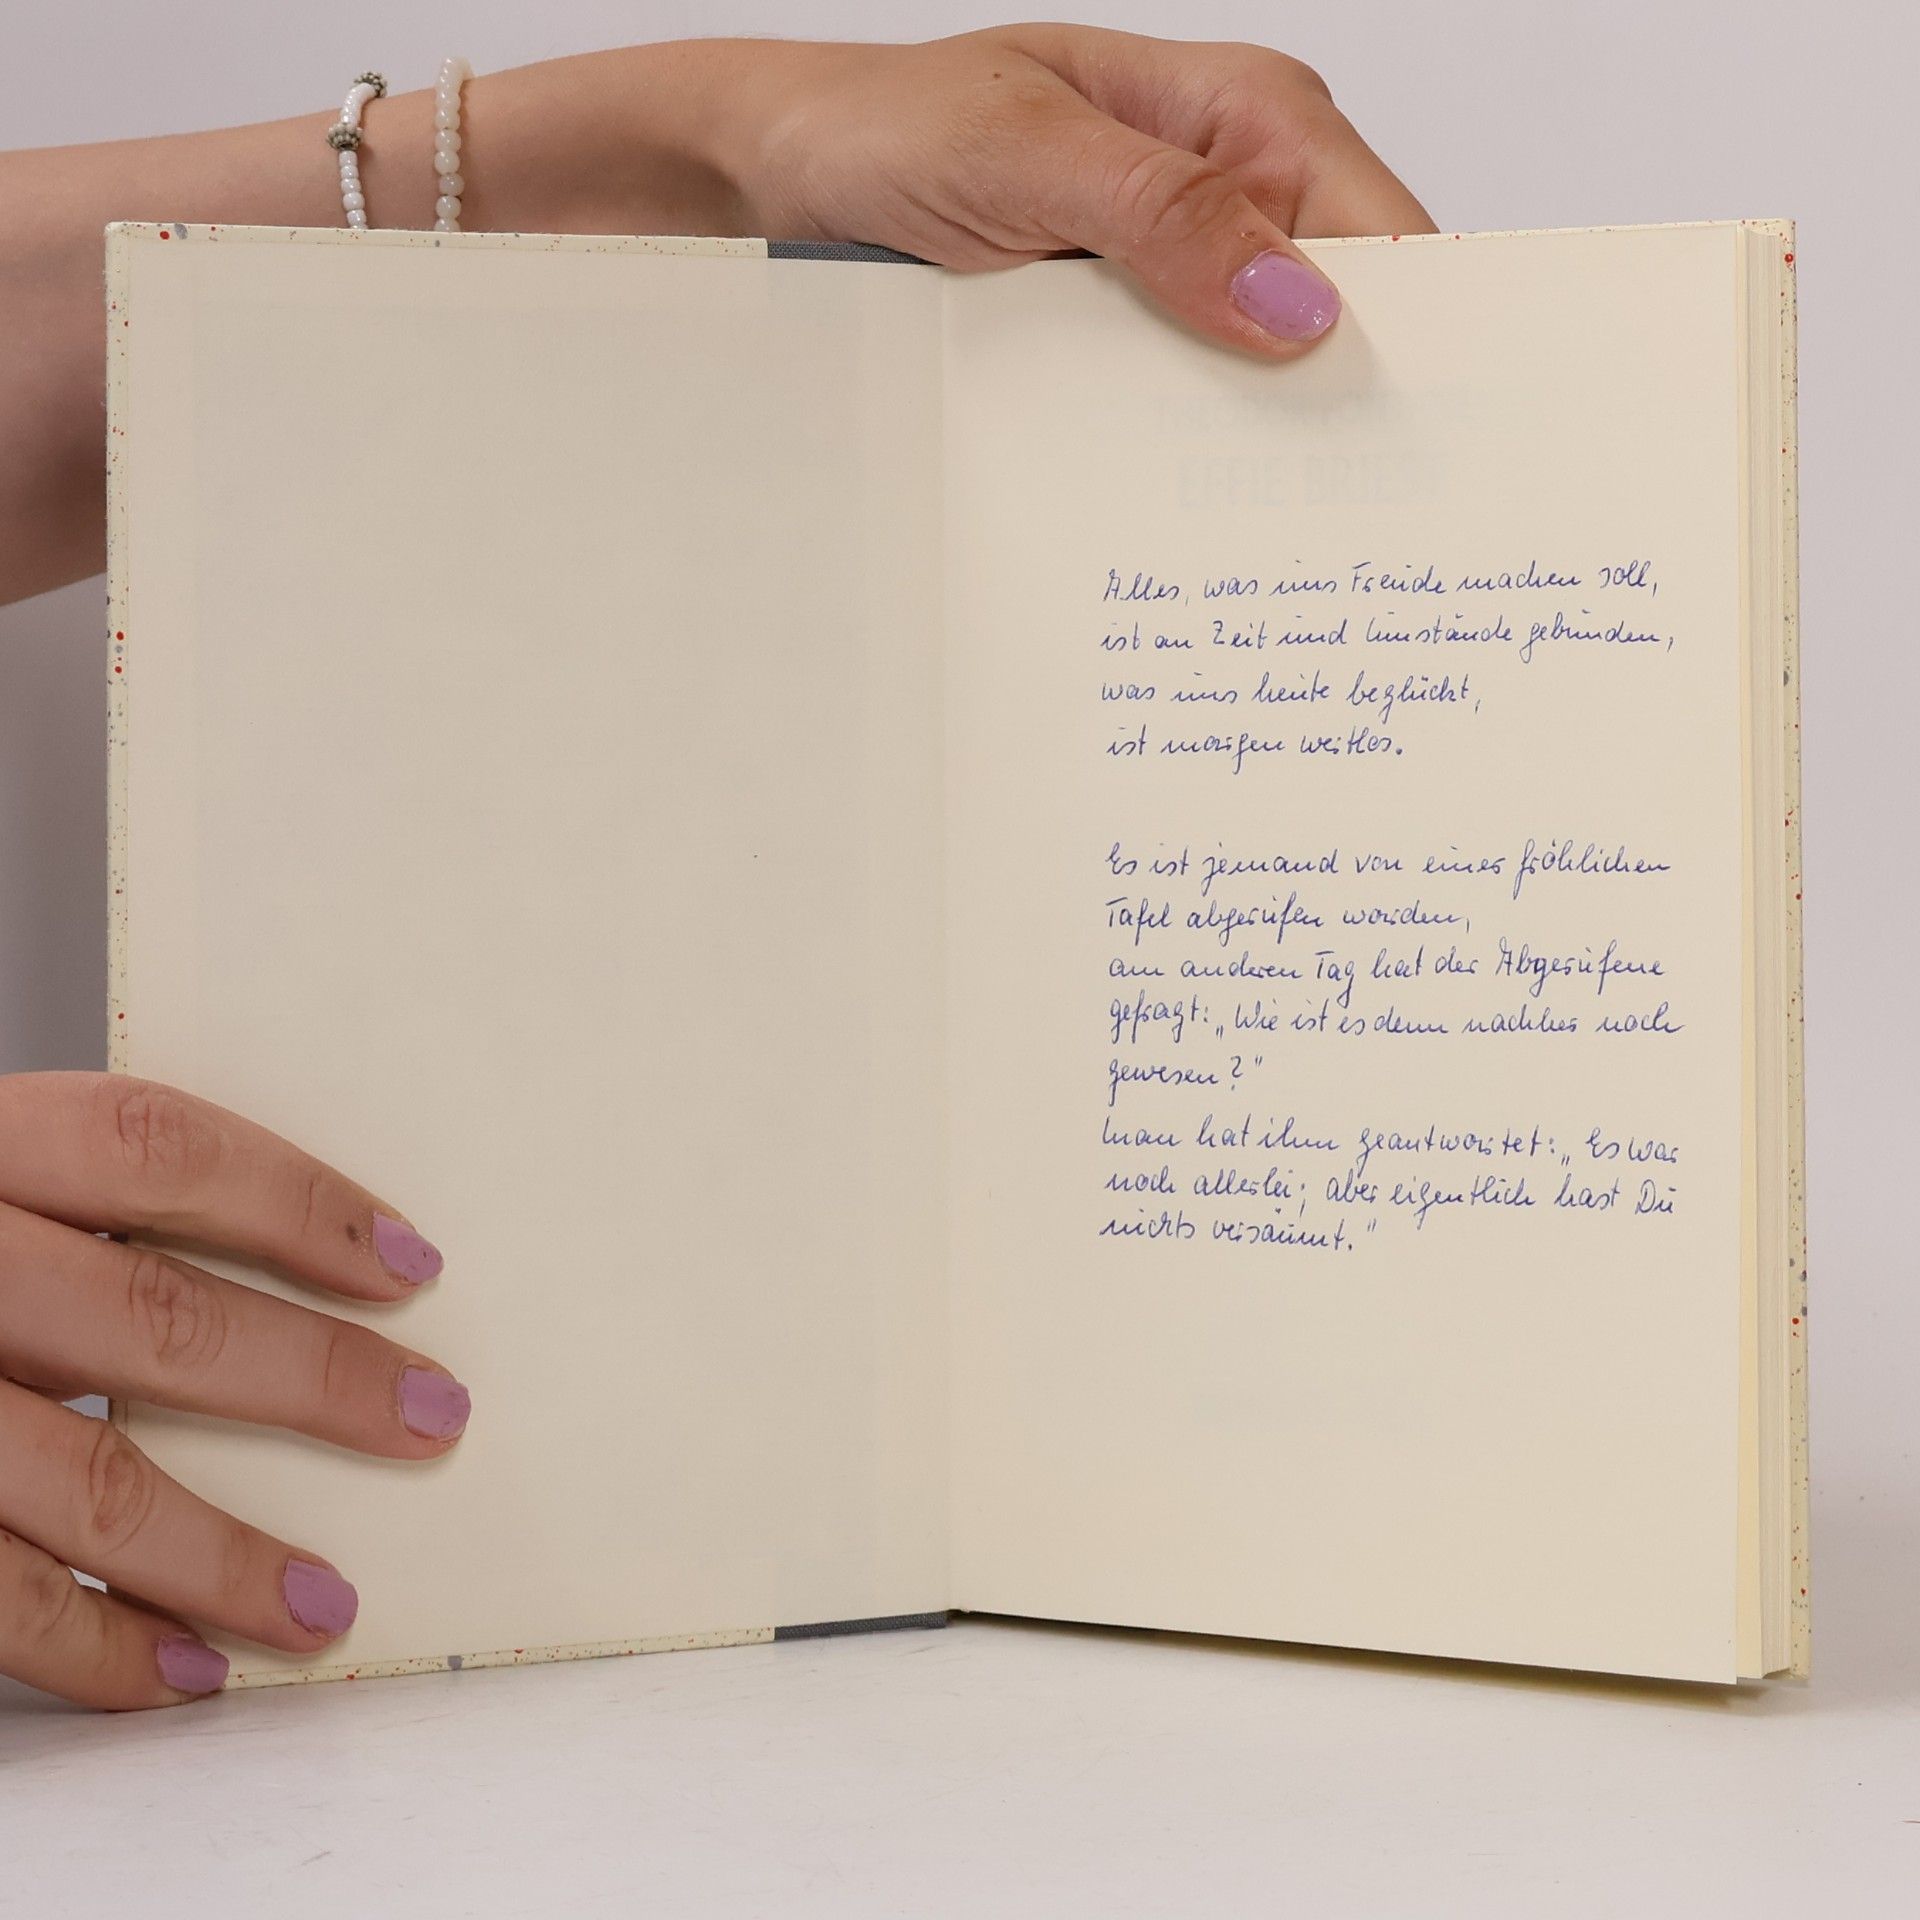 EFFIE BRIEST
Alles, was uns Freude machen soll,
ist an Zeit und Umstände gebunden,
was uns heute beglückt,
ist morgen wertlos.
Es ist jemand von einer fröhlichen
Tafel abgerufen worden,
am anderen Tag hat der Abgerufene
gefragt: „Wie ist es denn nachher noch
gewesen?"
Man hat ihm geantwortet: „Es war
noch allerlei; aber eigentlich hast Du
nichts versäumt."